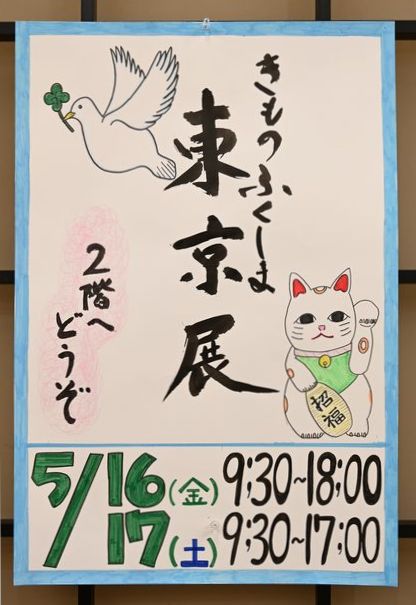 きものふくしま
東京展
2階へ
どうぞ
招福
5/16(金) 9:30~18:00
17(土) 9:30~17:00